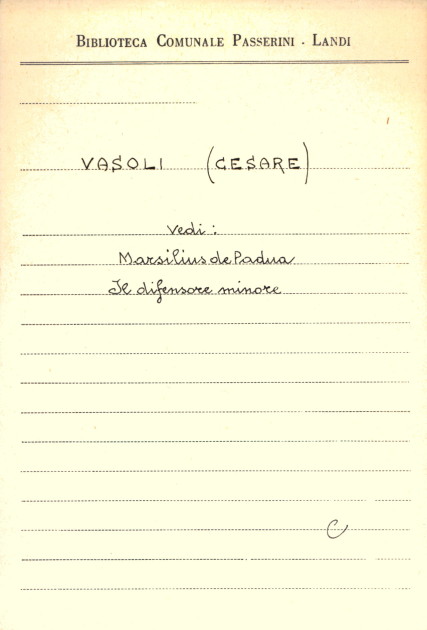 BIBLIOTECA COMUNALE PASSERINI - LANDI
VASOLI (CESARE)
Vedi:
Marsilius de Padua
Il difensore minore
C